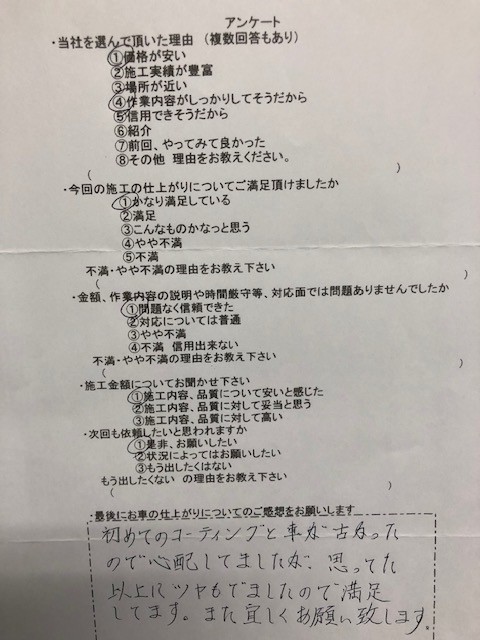 アンケート
・当社を選んで頂いた理由 (複数回答もあり)
①価格が安い
②施工実績が豊富
③場所が近い
④作業内容がしっかりしてそうだから
⑤信用できそうだから
⑥紹介
⑦前回、やってみて良かった
⑧その他 理由をお教えください。
( )
・今回の施工の仕上がりについてご満足頂けましたか
①かなり満足している
②満足
③こんなものかなっと思う
④やや不満
⑤不満
不満・やや不満の理由をお教え下さい
( )
・金額、作業内容の説明や時間厳守等、対応面では問題ありませんでしたか
①問題なく信頼できた
②対応については普通
③やや不満
④不満 信用出来ない
不満・やや不満の理由をお教え下さい
( )
・施工金額についてお聞かせ下さい
①施工内容、品質について安いと感じた
②施工内容、品質に対して妥当と思う
③施工内容、品質に対して高い
・次回も依頼したいと思われますか
①是非、お願いしたい
②状況によってはお願いしたい
③もう出したくはない
もう出したくない の理由をお教え下さい
( )
・最後にお車の仕上がりについてのご感想をお願いします
初めてのコーティングと車が古かった
ので心配してましたが、思ってた
以上にツヤもでましたので満足
してます。また宜しくお願い致します。